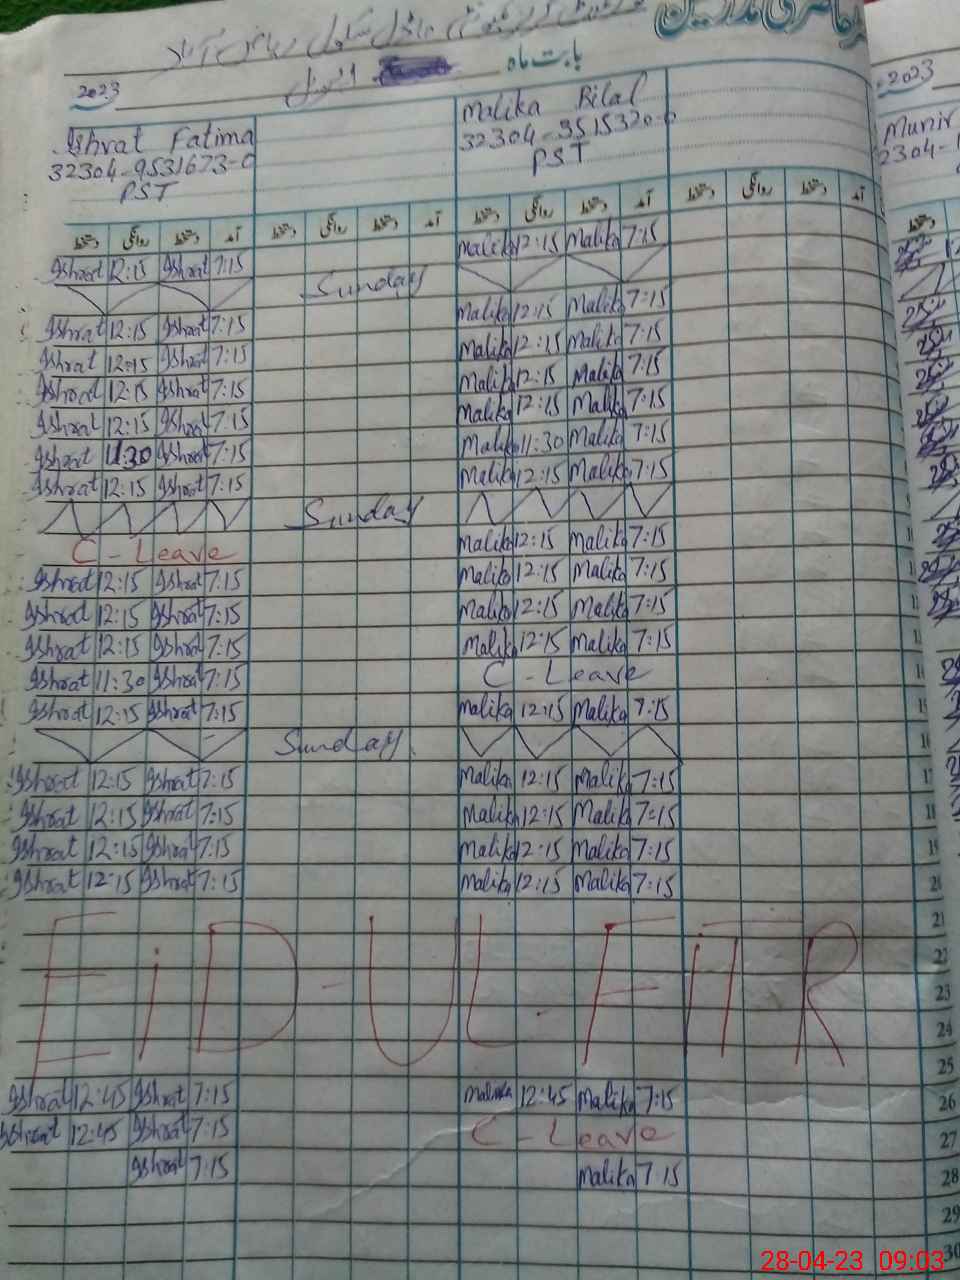 حاضری مدرسین
ماڈل سکول ریاض آباد
بابت ماہ اپریل
2023 2023
Ishrat Fatima Malika Bilal Munir
32304-9531673-0 32304-9515320-6
PST PST
دستخط روانگی دستخط آمد دستخط روانگی دستخط آمد دستخط روانگی دستخط آمد دستخط روانگی دستخط آمد دستخط
Ishrat 12:15 Ishrat 7:15 Malika 12:15 Malika 7:15
Sunday
Ishrat 12:15 Ishrat 7:15 Malika 12:15 Malika 7:15
Ishrat 12:15 Ishrat 7:15 Malika 12:15 Malika 7:15
Ishrat 12:15 Ishrat 7:15 Malika 12:15 Malika 7:15
Ishrat 12:15 Ishrat 7:15 Malika 12:15 Malika 7:15
Ishrat 11:30 Ishrat 7:15 Malika 11:30 Malika 7:15
Ishrat 12:15 Ishrat 7:15 Malika 12:15 Malika 7:15
Sunday
C - Leave Malika 12:15 Malika 7:15
Ishrat 12:15 Ishrat 7:15 Malika 12:15 Malika 7:15
Ishrat 12:15 Ishrat 7:15 Malika 12:15 Malika 7:15
Ishrat 12:15 Ishrat 7:15 Malika 12:15 Malika 7:15
Ishrat 11:30 Ishrat 7:15 C - Leave
Ishrat 12:15 Ishrat 7:15 Malika 12:15 Malika 7:15
Sunday 16
Ishrat 12:15 Ishrat 7:15 Malika 12:15 Malika 7:15 17
Ishrat 12:15 Ishrat 7:15 Malika 12:15 Malika 7:15 18
Ishrat 12:15 Ishrat 7:15 Malika 12:15 Malika 7:15 19
Ishrat 12:15 Ishrat 7:15 Malika 12:15 Malika 7:15 20
21
22
EiD - UL - FiTR 23
24
25
Ishrat 12:45 Ishrat 7:15 Malika 12:45 Malika 7:15 26
Ishrat 12:45 Ishrat 7:15 C - Leave 27
Ishrat 7:15 Malika 7:15 28
29
30
28-04-23 09:03